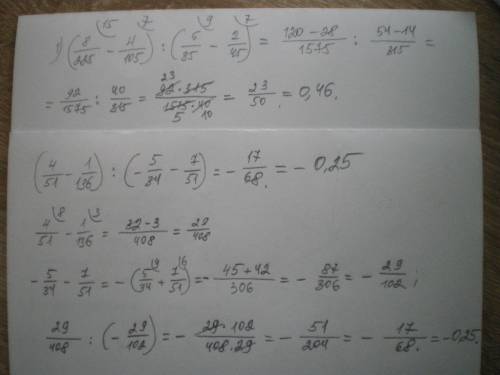 1) (8/225 \15 − 4/105 \7) : (6/35 \9 − 2/45 \7) = (120−28)/1575 : (54−14)/315 =
= 92/1575 : 40/315 = 23 92·315/1575·40 5 10 = 23/50 = 0,46.
(4/51 − 1/136) : (−5/34 − 7/51) = − 17/68. = − 0,25
4/51 \8 − 1/136 \3 = (32−3)/408 = 29/408
− 5/34 − 7/51 = −(5/34 \9 + 7/51 \6) = − (45+42)/306 = − 87/306 = − 29/102 ;
29/408 : (− 29/102) = − 29·102/408·29 = − 51/204 = − 17/68. = −0,25.